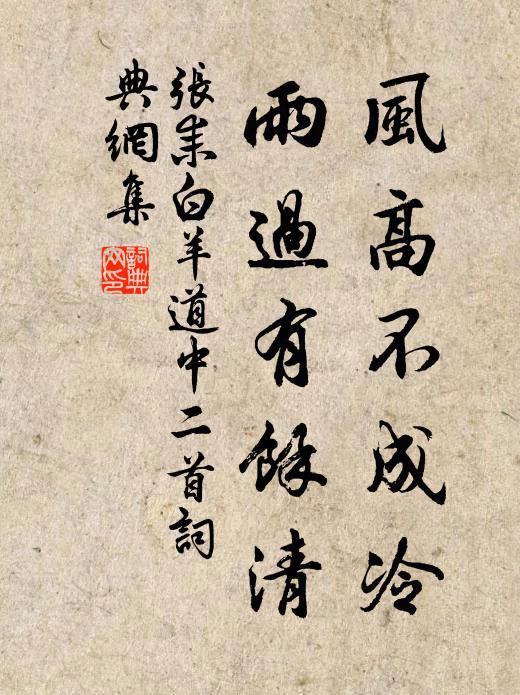 風高不成冷
雨過有餘清
張耒白羊道中二首詞
典網集
詞典